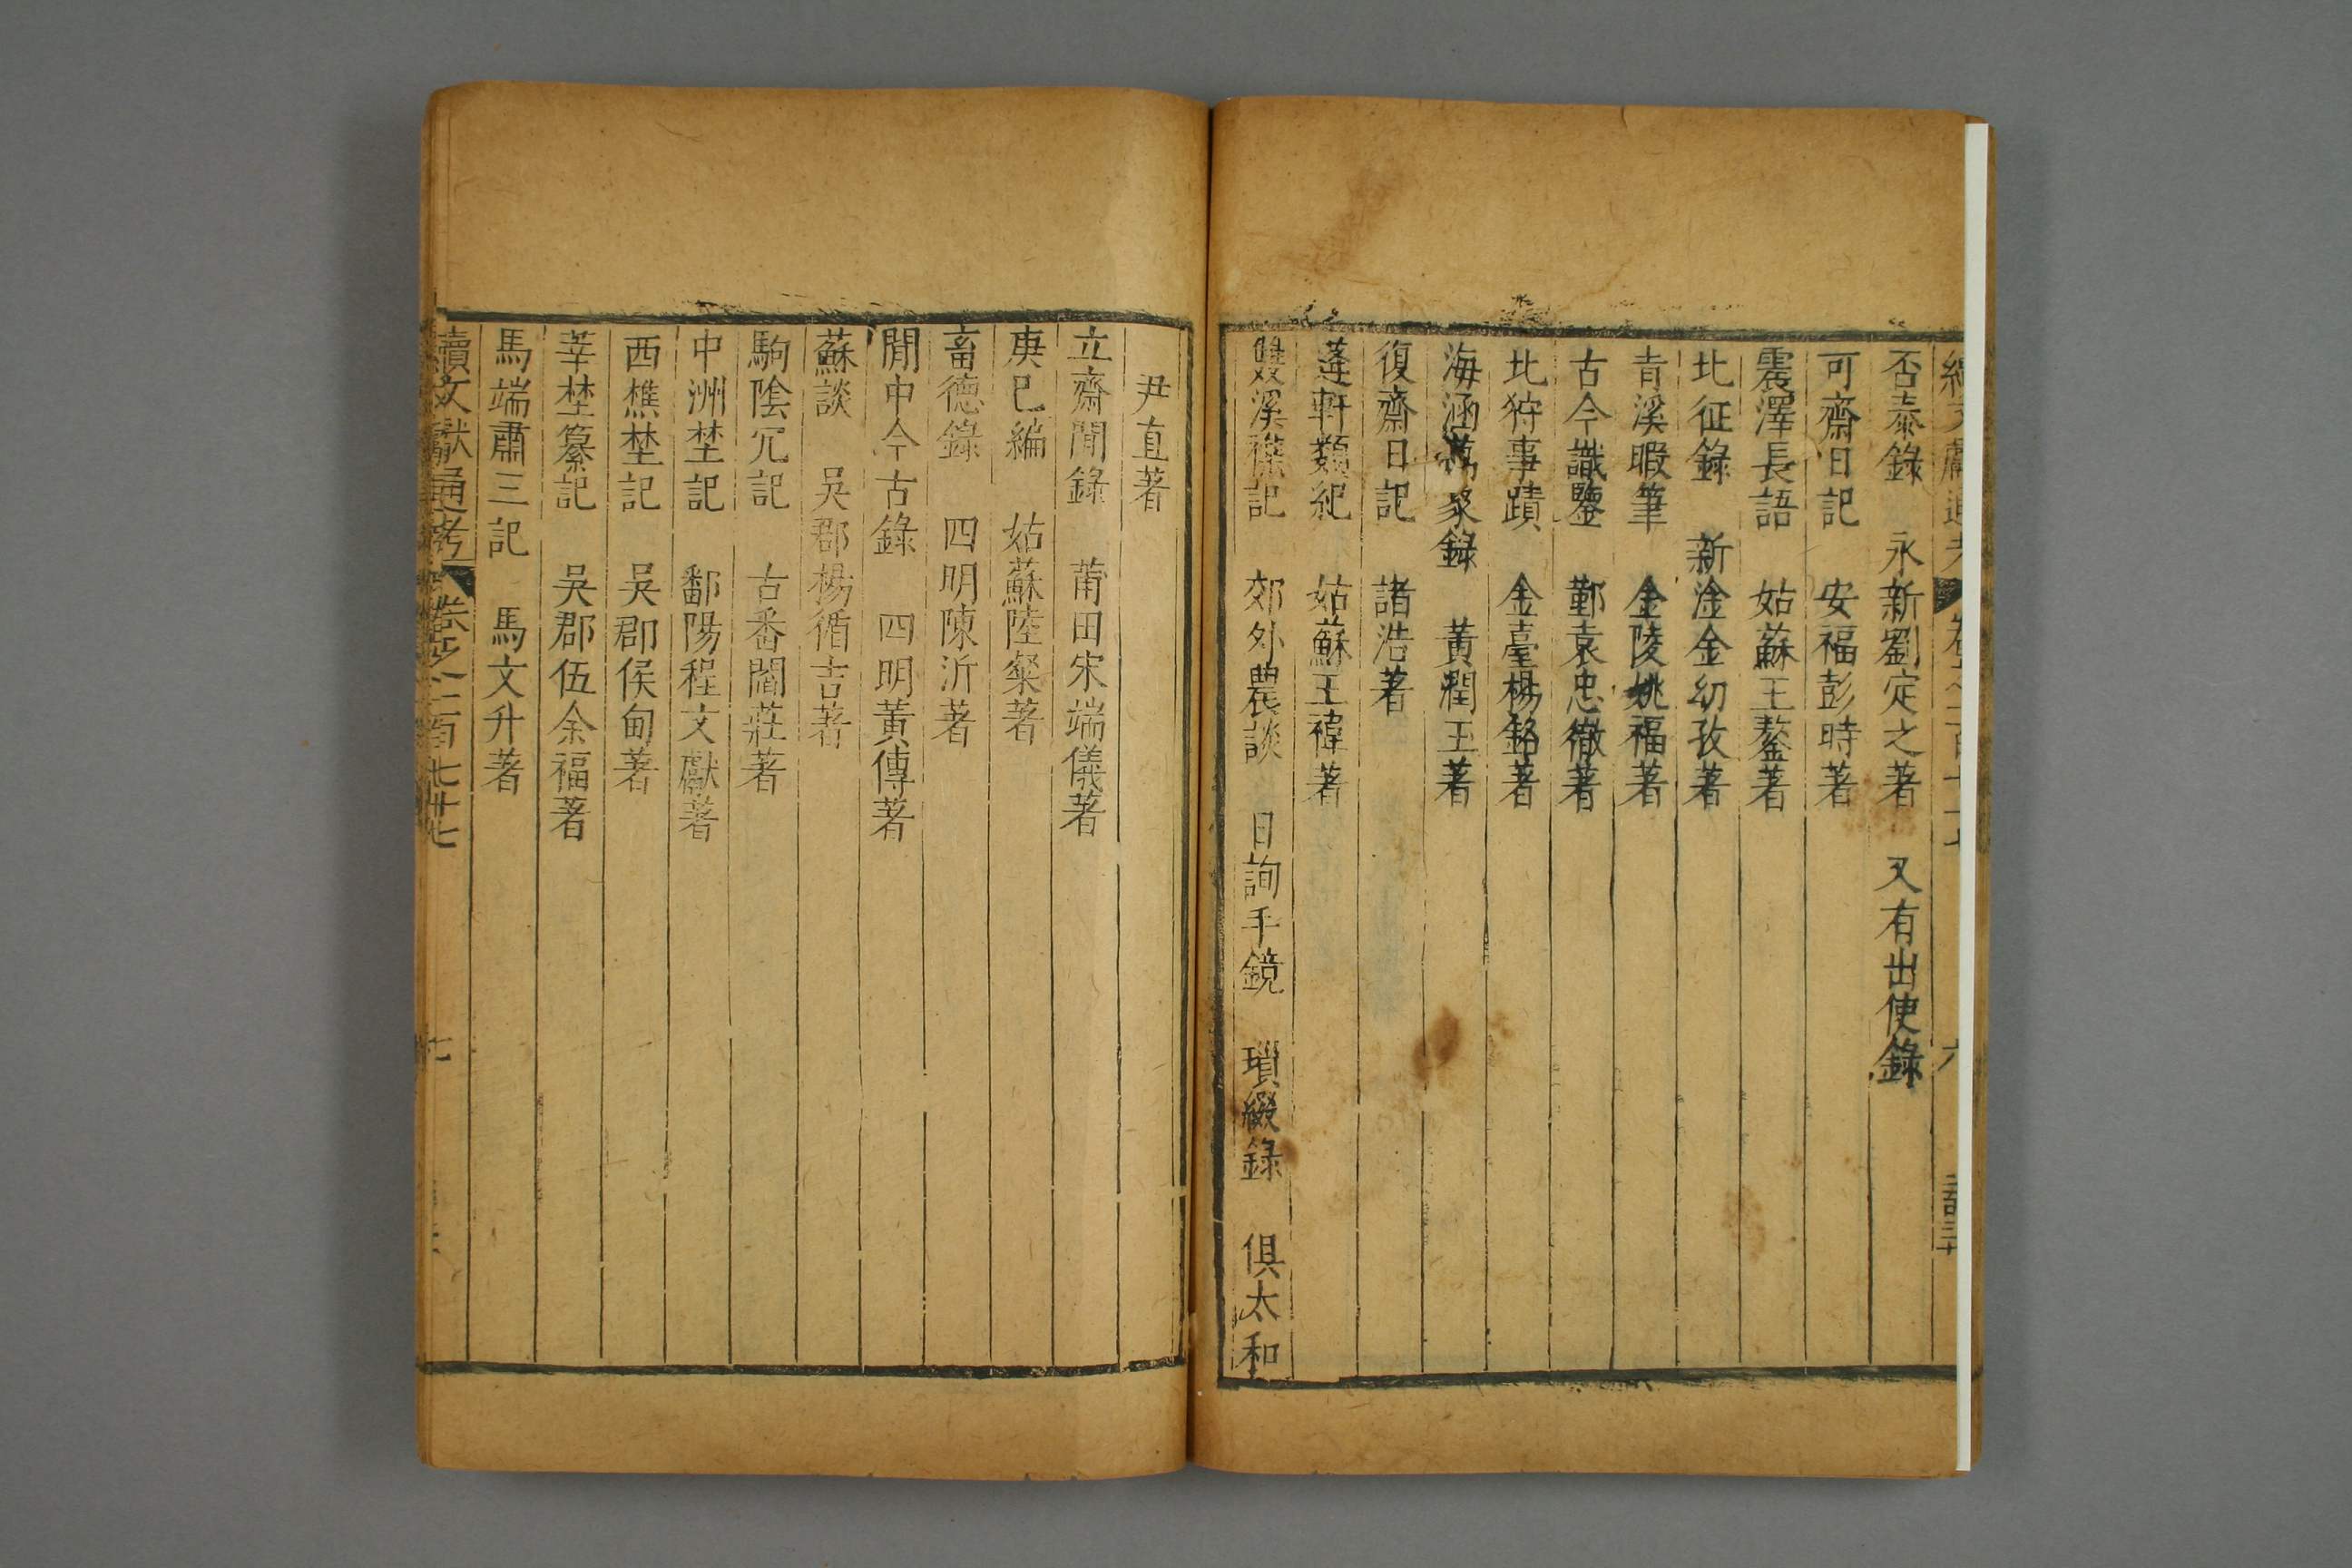 否泰錄 永新劉定之著 又有出使錄
可齋日記 安福彭時著
震澤長語 姑蘇王鏊著
北征錄 新淦金幼孜著
青溪暇筆 金陵姚福著
古今識鑒 鄞袁忠徹著
北狩事蹟 金臺楊銘著
海涵萬象録 黃潤玉著
復齋日記 諸浩著
蓬軒類紀 姑蘇王禕著
雙溪雜記 郊外農談 日詢手鏡 瑣綴錄 俱太和
尹直著
立齋閒錄 莆田宋端儀著
庚巳編 姑蘇陸粲著
畜德錄 四明陳沂著
閒中今古錄 四明黃傳著
蘇談 吳郡楊循吉著
駒陰冗記 古番闔莊著
中洲埜記 鄱陽程文獻著
西樵埜記 吳郡侯甸著
莘埜纂記 吳郡伍余福著
馬端肅三記 馬文升著
續文獻通考 卷之一百七十七
七